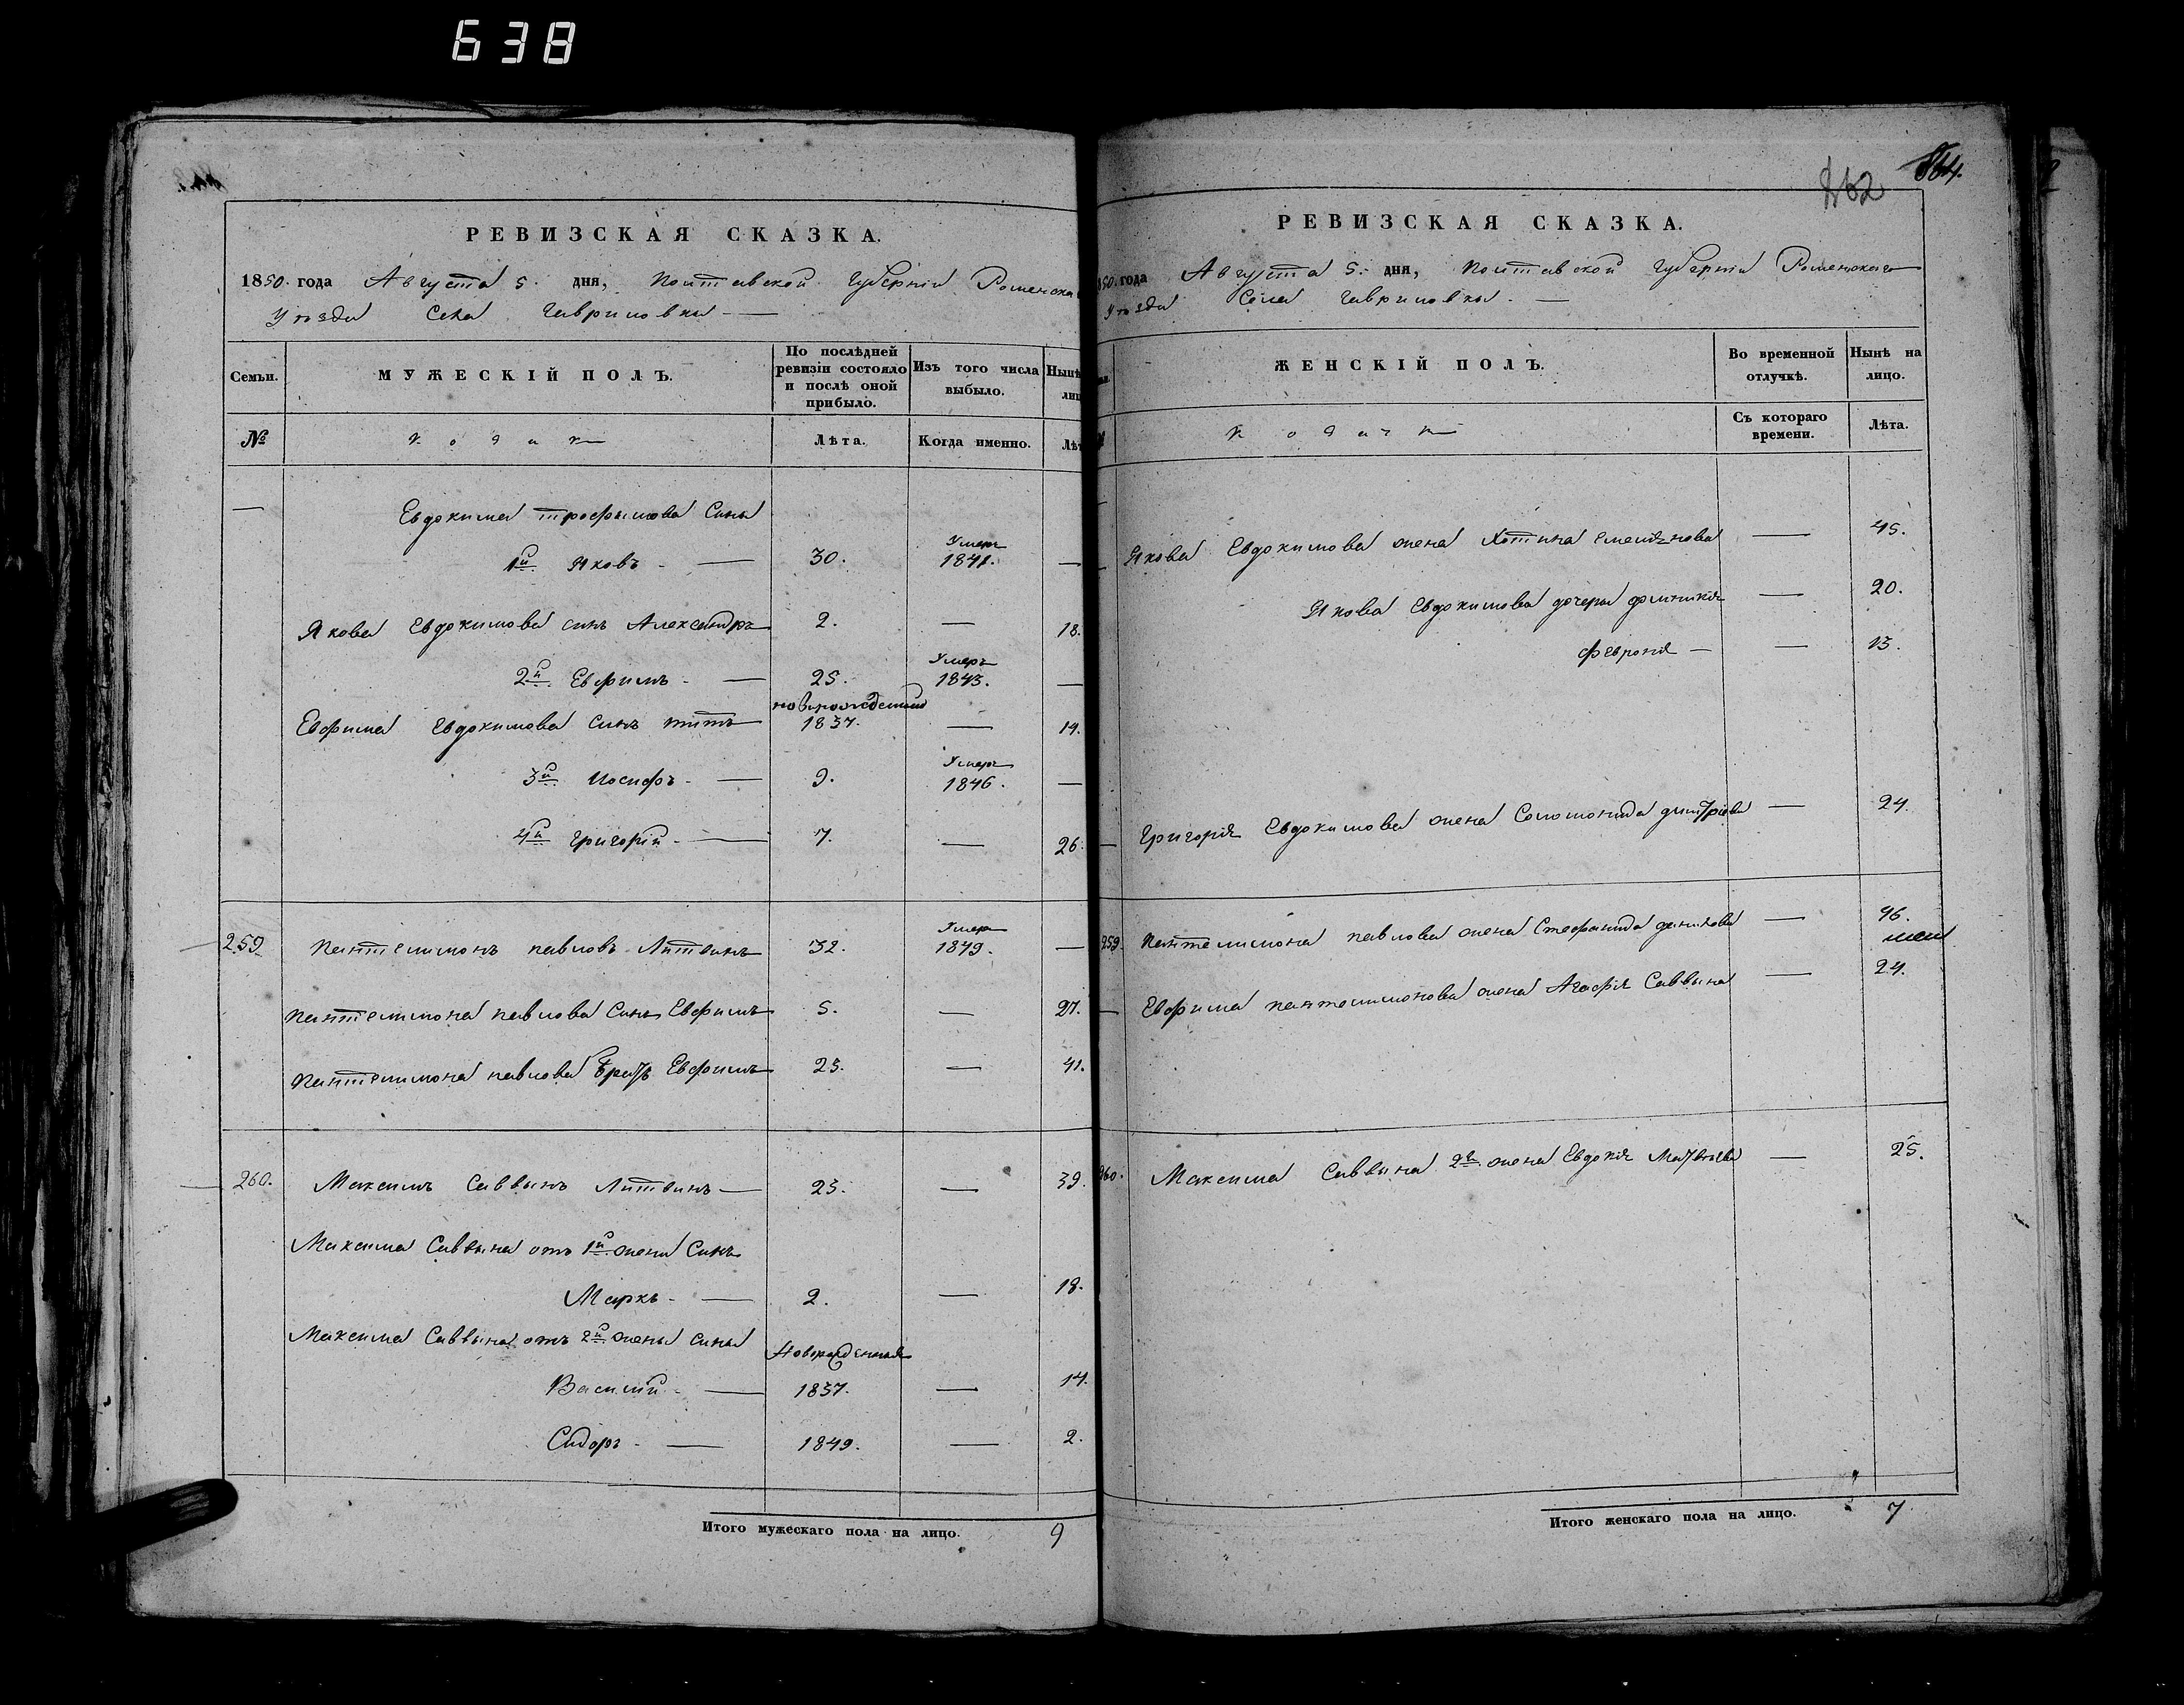 638
РЕВИЗСКАЯ СКАЗКА.
1850. года Августа 5. дня, Полтавской Губерніи Роменска
Уѣзда Села Гавриловки. —
Семьи. МУЖЕСКІЙ ПОЛЪ. По послѣдней ревизіи состояло и послѣ оной прибыло. Изъ того числа выбыло. Нынѣ лиц
№ Лѣта. Когда именно. Лѣт
— Евдокима Трофимова Сыны
1й Яковъ - — 30. Умеръ 1841. —
Якова Евдокимова сынъ Александръ 2. — 18.
2й Евфимъ - — 25. Умеръ 1843. —
Евфима Евдокимова Сынъ Титъ новорожденный 1837. — 14.
3й Іосифъ - — 9. Умеръ 1846. —
4й Григорій - — 7. — 26.
259. Пантелимонъ Павловъ Литвинъ 32. Умеръ 1849. —
Пантелимона Павлова Сынъ Евфимъ 5. — 21.
Пантелимона Павлова Братъ Евфимъ 25. — 41.
260. Максимъ Саввинъ Литвинъ — 23. — 39.
Максима Саввина отъ 1й жены Сынъ
Маркъ - — 2. — 18.
Максима Саввина отъ 2й жены сыны Новорожденныя
Василій - — 1837. — 14.
Сидоръ - — 1849. — 2.
Итого мужескаго пола на лицо. 9
864.
РЕВИЗСКАЯ СКАЗКА.
850. года Августа 5. дня, Полтавской Губерніи Роменскаго
Уѣзда Села Гавриловки. —
ЖЕНСКІЙ ПОЛЪ. Во временной отлучкѣ. Нынѣ на лицо.
Съ котораго времени. Лѣта.
Якова Евдокимова жена Хотина Емельянова — 45.
Якова Евдокимова дочери — 20.
Февронія — — 13.
— Григорія Евдокимова жена Соломонида Дмитріева — 24.
259. Пантелимона Павлова жена Стефанида — 46.
— Евфима Пантелимонова жена Агафія Саввина — 24.
260. Максима Саввина 2я жена Евдокія Матвѣева — 25.
Итого женскаго пола на лицо. 7